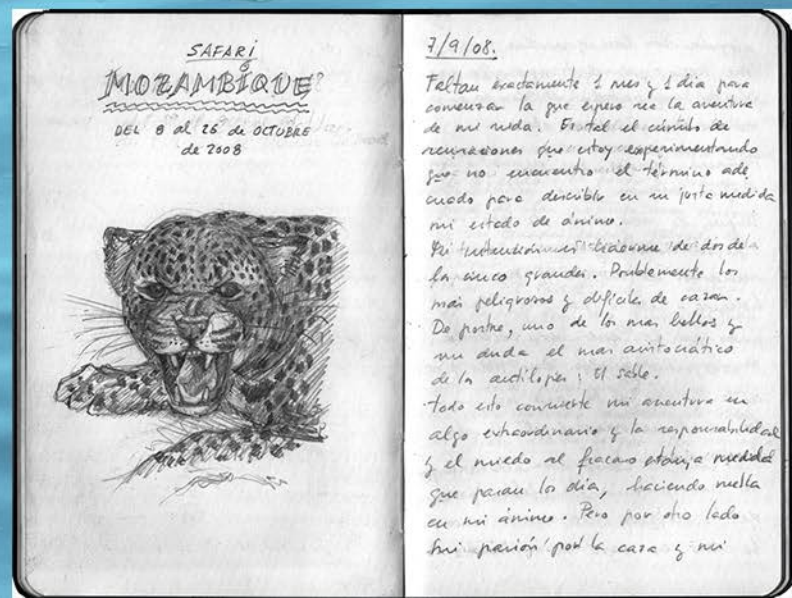 SAFARI
MOZAMBIQUE
DEL 8 al 25 de OCTUBRE
de 2008
7/9/08.
Faltan exactamente 1 mes y 1 día para
comenzar la que espero sea la aventura
de mi vida. Es tal el cúmulo de
sensaciones que estoy experimentando
que no encuentro el término ade
cuado para describir en su justa medida
mi estado de ánimo.
Mi intención es hacerme de dos de
los cinco grandes. Posiblemente los
mas peligrosos y dificiles de cazar.
De postre, uno de los mas bellos y
sin duda el mas aristocrático
de los antílopes; El sable.
Todo esto convierte mi aventura en
algo extraordinario y la responsabilidad
y el miedo al fracaso medida
que pasan los dias, haciendo mella
en mi ánimo. Pero por otro lado
mi pasión por la caza y mi